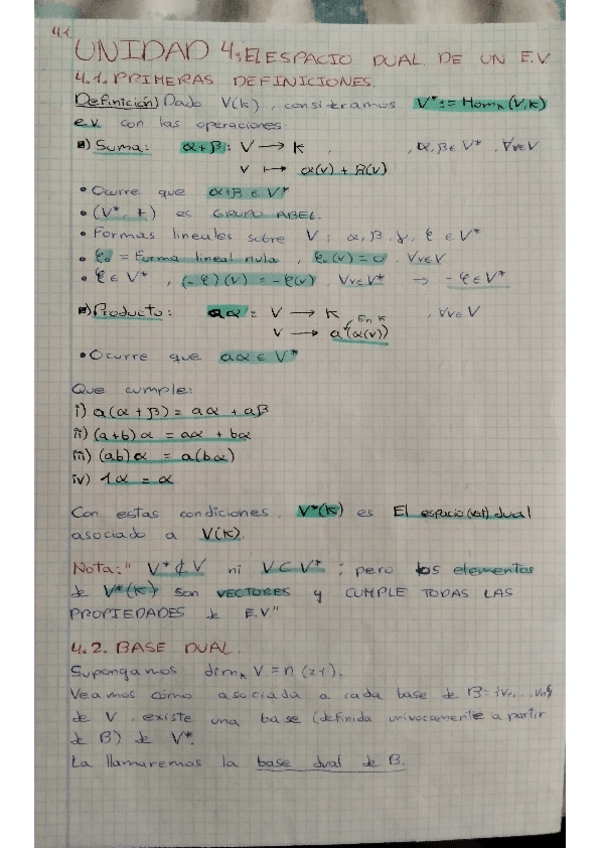 4.1
UNIDAD 4: El ESPACIO DUAL DE UN E.V
4.1. PRIMERAS DEFINICIONES.
Definición) Dado V(k), consideramos V* := Homₖ(V,k)
e.v. con las operaciones:
a) Suma: α+β : V → k , α,β ∈ V*, ∀v∈V
v ↦ α(v) + β(v)
• Ocurre que α+β ∈ V*
• (V*, +) es GRUPO ABEL.
• Formas lineales sobre V : α, β, γ, φ ∈ V*
• φ₀ = Forma lineal nula , φ₀(v) = 0 ∀v∈V
• φ ∈ V*, (-φ)(v) = -φ(v), ∀v∈V* → -φ ∈ V*
Producto: aα : V → k , ∀v∈V
v → a·(α(v)) En k
• Ocurre que aα ∈ V*
Que cumple:
i) a(α + β) = aα + aβ
ii) (a+b)α = aα + bα
iii) (ab)α = a(bα)
iv) 1α = α
Con estas condiciones, V*(k) es El espacio (vect) dual
asociado a V(k).
Nota: " V* ⊄ V ni V ⊂ V* ; pero los elementos
de V*(k) son VECTORES y CUMPLE TODAS LAS
PROPIEDADES de E.V."
4.2. BASE DUAL.
Supongamos dimₖ V = n (≥1).
Veamos cómo asociada a cada base de B = {v₁,...,vₙ}
de V, existe una base (definida unívocamente a partir
de B) de V*.
La llamaremos la base dual de B.